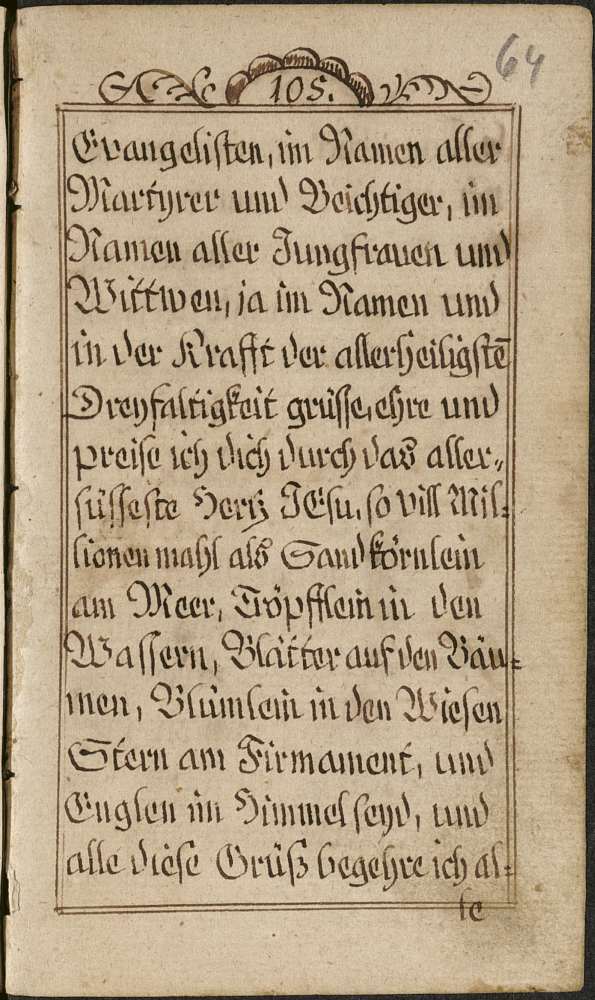 64
105.
Evangelisten, im Namen aller
Martyrer und Beichtiger, im
Namen aller Jungfrauen und
Wittwen, ja im Namen und
in der Krafft der allerheiligstē
Dreyfaltigkeit grüsse, ehre und
preise ich dich durch das aller„
süsseste Hertz JEsu, so vill Mil=
lionen mahl als Sandkörnlein
am Meer, Tröpfflein in den
Wassern, Blätter auf den Bäu=
men, Blümlein in den Wiesen
Stern am Firmament, und
Englen im Himmel seyd, und
alle diese Grüß begehre ich al=
le